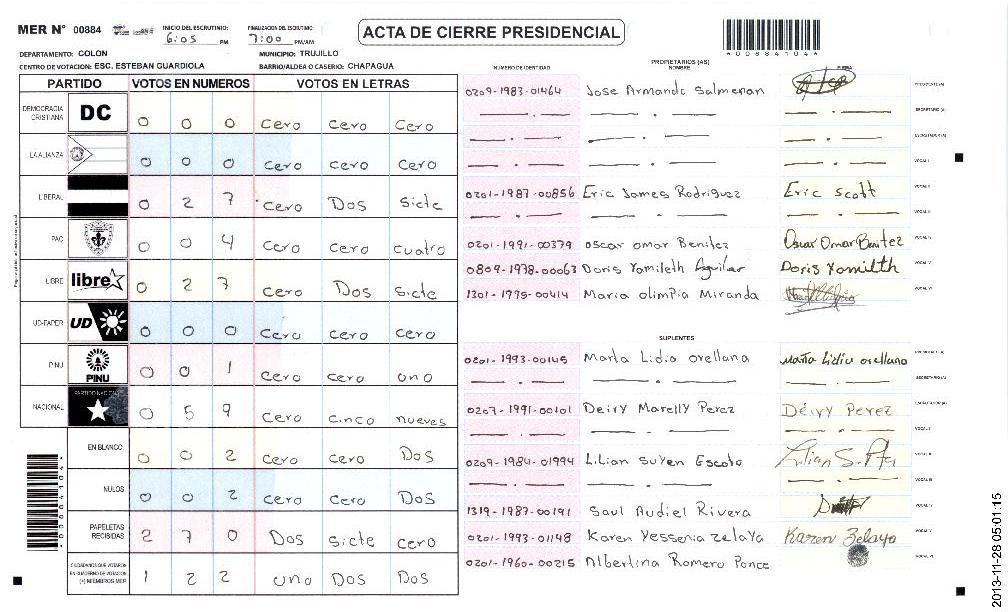 MER Nº 00884 INICIO DEL ESCRUTINIO: 6:05 PM FINALIZACION DEL ESCRUTINIO: 7:00 PM/AM
ACTA DE CIERRE PRESIDENCIAL
*00884104*
DEPARTAMENTO: COLON MUNICIPIO: TRUJILLO
CENTRO DE VOTACION: ESC. ESTEBAN GUARDIOLA BARRIO/ALDEA O CASERIO: CHAPAGUA
PARTIDO VOTOS EN NUMEROS VOTOS EN LETRAS
DEMOCRACIA CRISTIANA DC 0 0 0 Cero Cero Cero
LA ALIANZA 0 0 0 Cero Cero Cero
LIBERAL 0 2 7 Cero Dos Siete
PAC 0 0 4 Cero Cero Cuatro
LIBRE libre 0 2 7 Cero Dos Siete
UD-FAPER UD 0 0 0 Cero Cero Cero
PINU PINU 0 0 1 Cero Cero uno
NACIONAL PARTIDO NACIONAL 0 5 9 Cero Cinco nueves
EN BLANCO 0 0 2 Cero Cero Dos
NULOS 0 0 2 Cero Cero Dos
PAPELETAS RECIBIDAS 2 7 0 Dos Siete Cero
CIUDADANOS QUE VOTARON EN CUADERNO DE VOTACION (+) MIEMBROS MER 1 2 2 uno Dos Dos
PROPIETARIOS (AS)
NUMERO DE IDENTIDAD NOMBRE FIRMA
0209-1983-01464 Jose Armando PRESIDENTE (A)
SECRETARIO (A)
ESCRUTADOR (A)
VOCAL I
0201-1987-00856 Eric James Rodriguez Eric Scott VOCAL II
VOCAL III
0201-1991-00379 Oscar Omar Benitez Oscar Omar Benitez VOCAL IV
0809-1978-00063 Doris Yomileth Aguilar Doris Yomileth VOCAL V
1301-1975-00414 Maria Olimpia Miranda VOCAL VI
SUPLENTES
0201-1993-00145 Marta Lidia Orellana Marta Lidia Orellano PRESIDENTE (A)
SECRETARIO (A)
0207-1991-00101 Deiry Marelly Perez Déiry Perez ESCRUTADOR (A)
VOCAL I
0209-1984-01994 Lilian Suyen Escoto Lilian S. VOCAL II
VOCAL III
1319-1987-00191 Saul Audiel Rivera VOCAL IV
0201-1993-01148 Karen Yessenia Zelaya Karen Zelaya VOCAL V
0201-1960-00215 Albertina Romero Ponce VOCAL VI
*00884104*
2013-11-28 05:01:15